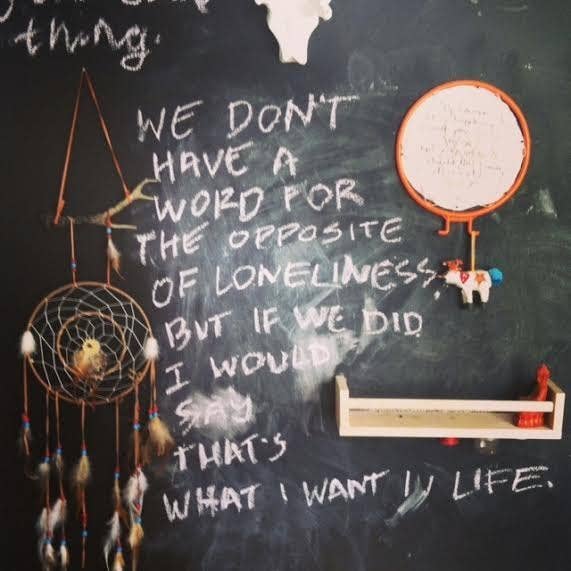 thing.
WE DON'T
HAVE A
WORD FOR
THE OPPOSITE
OF LONELINESS,
BUT IF WE DID
I WOULD
SAY
THAT'S
WHAT I WANT IN LIFE.